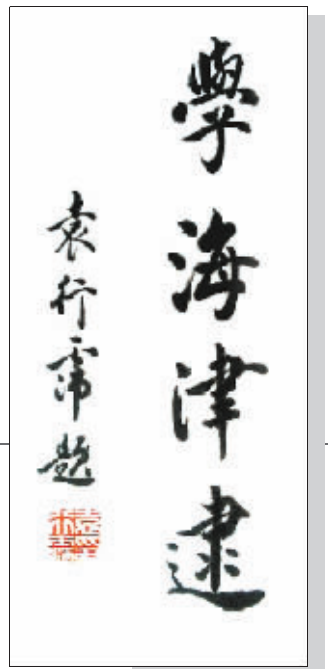 學海津逮
袁行霈題